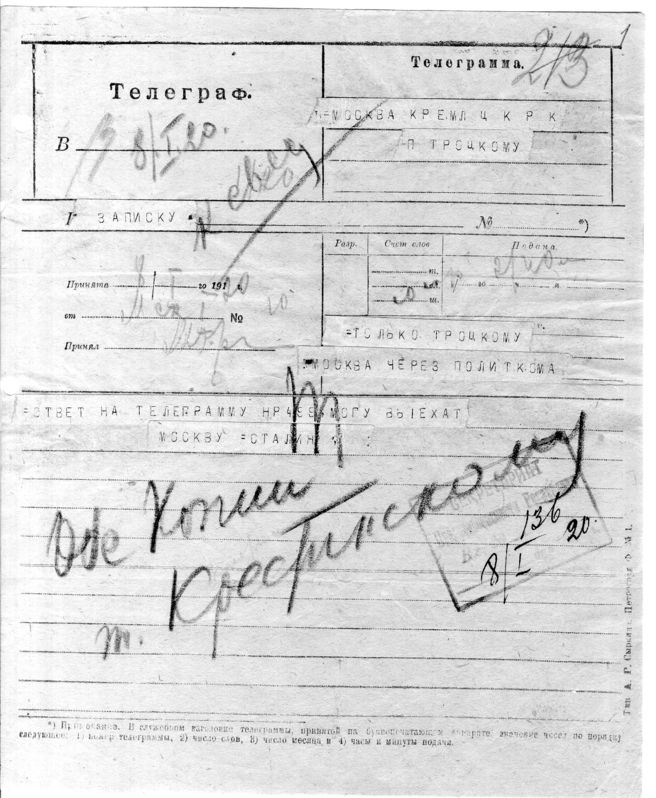 1
213
Телеграф.
Телеграмма.
=МОСКВА КРЕМЛ Ц К Р К
П ТРОЦКОМУ
В
8/I 20.
ЗАПИСКУ
№ *)
Разр. Счет слов Подана.
Принята 8/I го 191 г. 20
от №
Принял
=ТОЛЬКО ТРОЦКОМУ
МОСКВА ЧЕРЕЗ ПОЛИТКОМА
=ОТВЕТ НА ТЕЛЕГРАММУ НР МОГУ ВЫЕХАТ
МОСКВУ =СТАЛИН
Две копии
т. Крестинскому
136
8/I 20.
Тип. А. Р. Сыркина, Петроград Ф. № 1.
*) Примечание. В служебном заголовке телеграммы, принятой на буквопечатающем аппарате, значение чисел по порядку
следующее: 1) номер телеграммы, 2) число слов, 3) число месяца и 4) часы и минуты подачи.